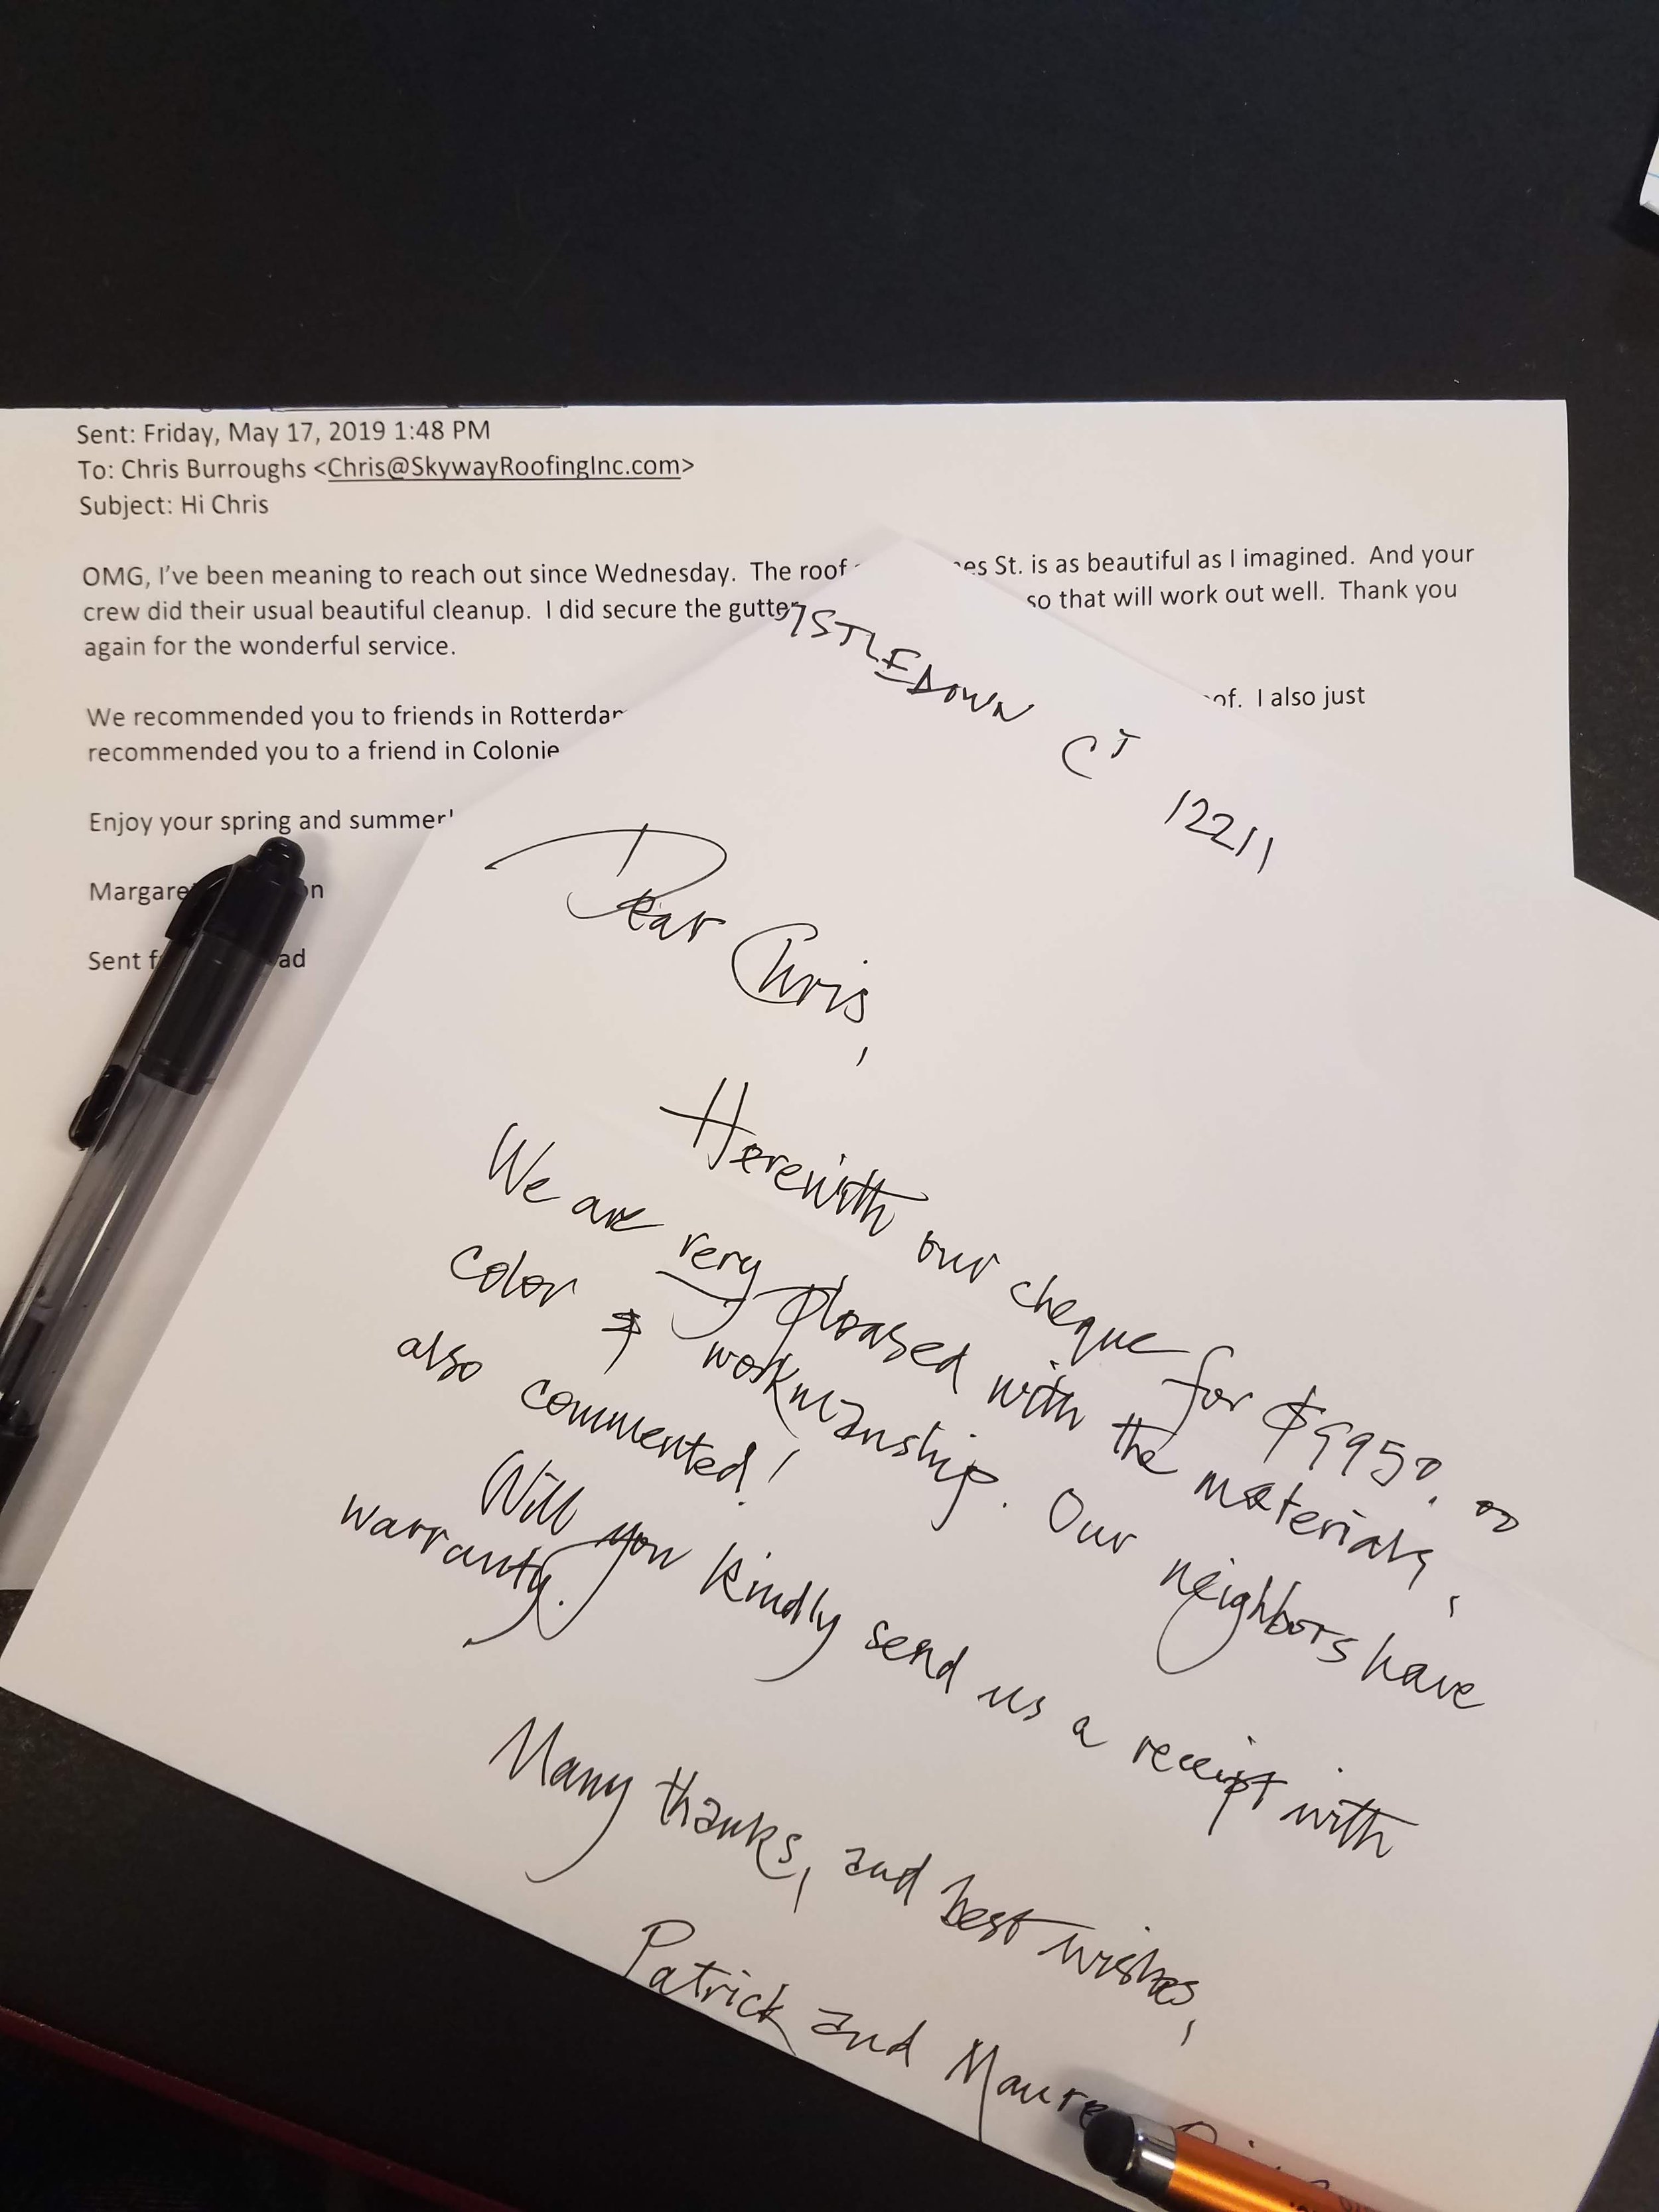 Sent: Friday, May 17, 2019 1:48 PM
To: Chris Burroughs <Chris@SkywayRoofingInc.com>
Subject: Hi Chris
OMG, I've been meaning to reach out since Wednesday. The roof es St. is as beautiful as I imagined. And your
crew did their usual beautiful cleanup. I did secure the gutte so that will work out well. Thank you
again for the wonderful service.
We recommended you to friends in Rotterda of. I also just
recommended you to a friend in Colonie
Enjoy your spring and summer
Margare n
Sent f ad
ISTLEDOWN CT 12211
Dear Chris,
Herewith our cheque for $9950.00
We are very pleased with the materials,
color & workmanship. Our neighbors have
also commented!
Will you kindly send us a receipt with
warranty.
Many thanks, and best wishes,
Patrick and Maure